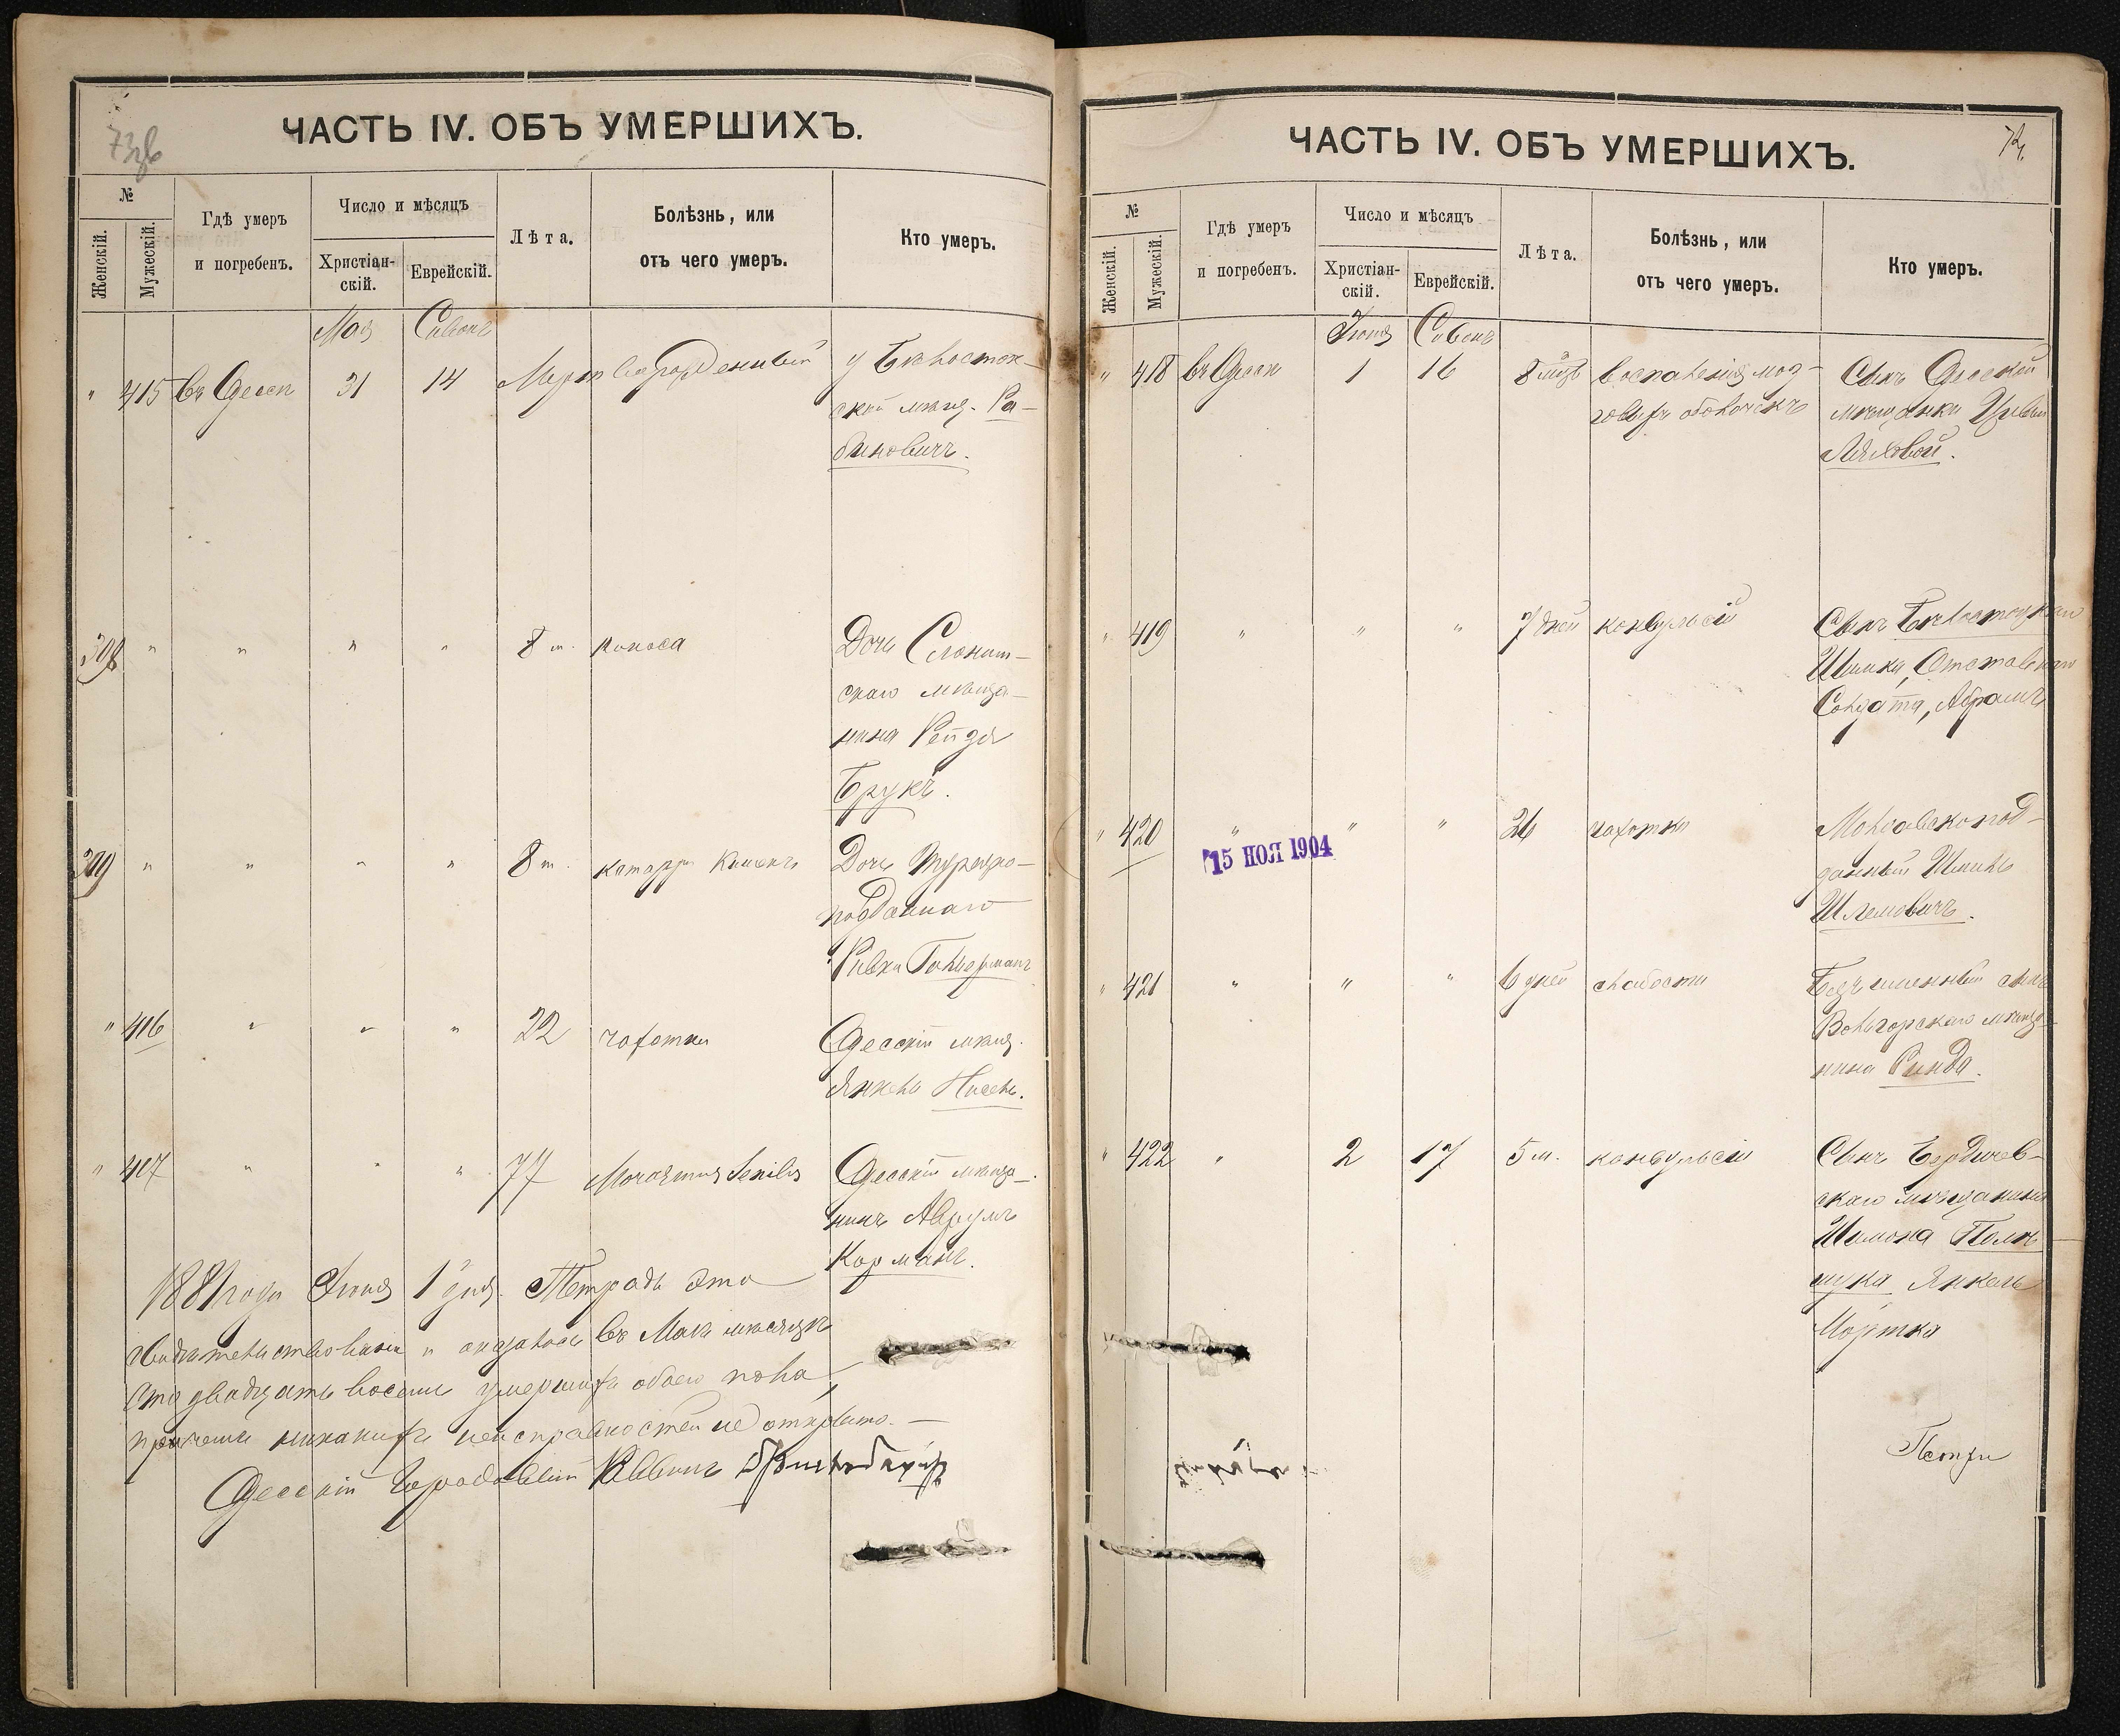 73об
ЧАСТЬ IV. ОБЪ УМЕРШИХЪ.
№
Женскій.
Мужескій.
Гдѣ умеръ
и погребенъ.
Число и мѣсяцъ
Христіан-
скій.
Еврейскій.
Лѣта.
Болѣзнь, или
отъ чего умеръ.
Кто умеръ.
Мая Сивонъ
" 415 въ Одессѣ 31 14 Мертворожденный у Бѣлосток-
ской мѣщ. Ра-
биновичъ.
398 " " " " 8 м. поноса Дочь Слоним-
скаго мѣща-
нина Рейзя
Брукъ.
399 " " " " 8 м. катарръ кишекъ Дочь Турецко-
подданнаго
Ривка Гольцманъ
" 416 " " " 22 чахотки Одесскій мѣщ.
Янкель Нисель.
" 417 " " " 77 Senilis Одесскій мѣща-
нинъ Аврумъ
Корманъ.
1881 года Іюня 1 дня. Тетрадь эта
свидѣтельствована и оказалось въ Маѣ мѣсяцѣ
сто двадцать восемь умершихъ обоего пола,
причемъ никакихъ неисправностей не открыто.
Одесскій Городовой Раввинъ
ЧАСТЬ IV. ОБЪ УМЕРШИХЪ.
№
Женскій.
Мужескій.
Гдѣ умеръ
и погребенъ.
Число и мѣсяцъ
Христіан-
скій.
Еврейскій.
Лѣта.
Болѣзнь, или
отъ чего умеръ.
Кто умеръ.
Іюня Сивонъ
" 418 въ Одессѣ 1 16 8 мѣс воспаленія моз-
говыхъ оболочекъ Сынъ Одесской
мѣщанки Цивьи
Ляховой.
" 419 " " " 7 дней конвульсій Сынъ Бѣлостоцкаго
Шимка, Отставнаго
Солдата, Абрамъ
" 420 " " " 26 чахотка Молдавскопод-
данный Шмиль
Шлемовичъ.
15 НОЯ 1904
" 421 " " " 6 дней слабости Безъименный сынъ
мѣща-
нина Ринда.
" 422 " 2 17 5 м. конвульсіи Сынъ Бердичев-
скаго мѣщанина
Шимона Поли-
щука Янкель
Мортка